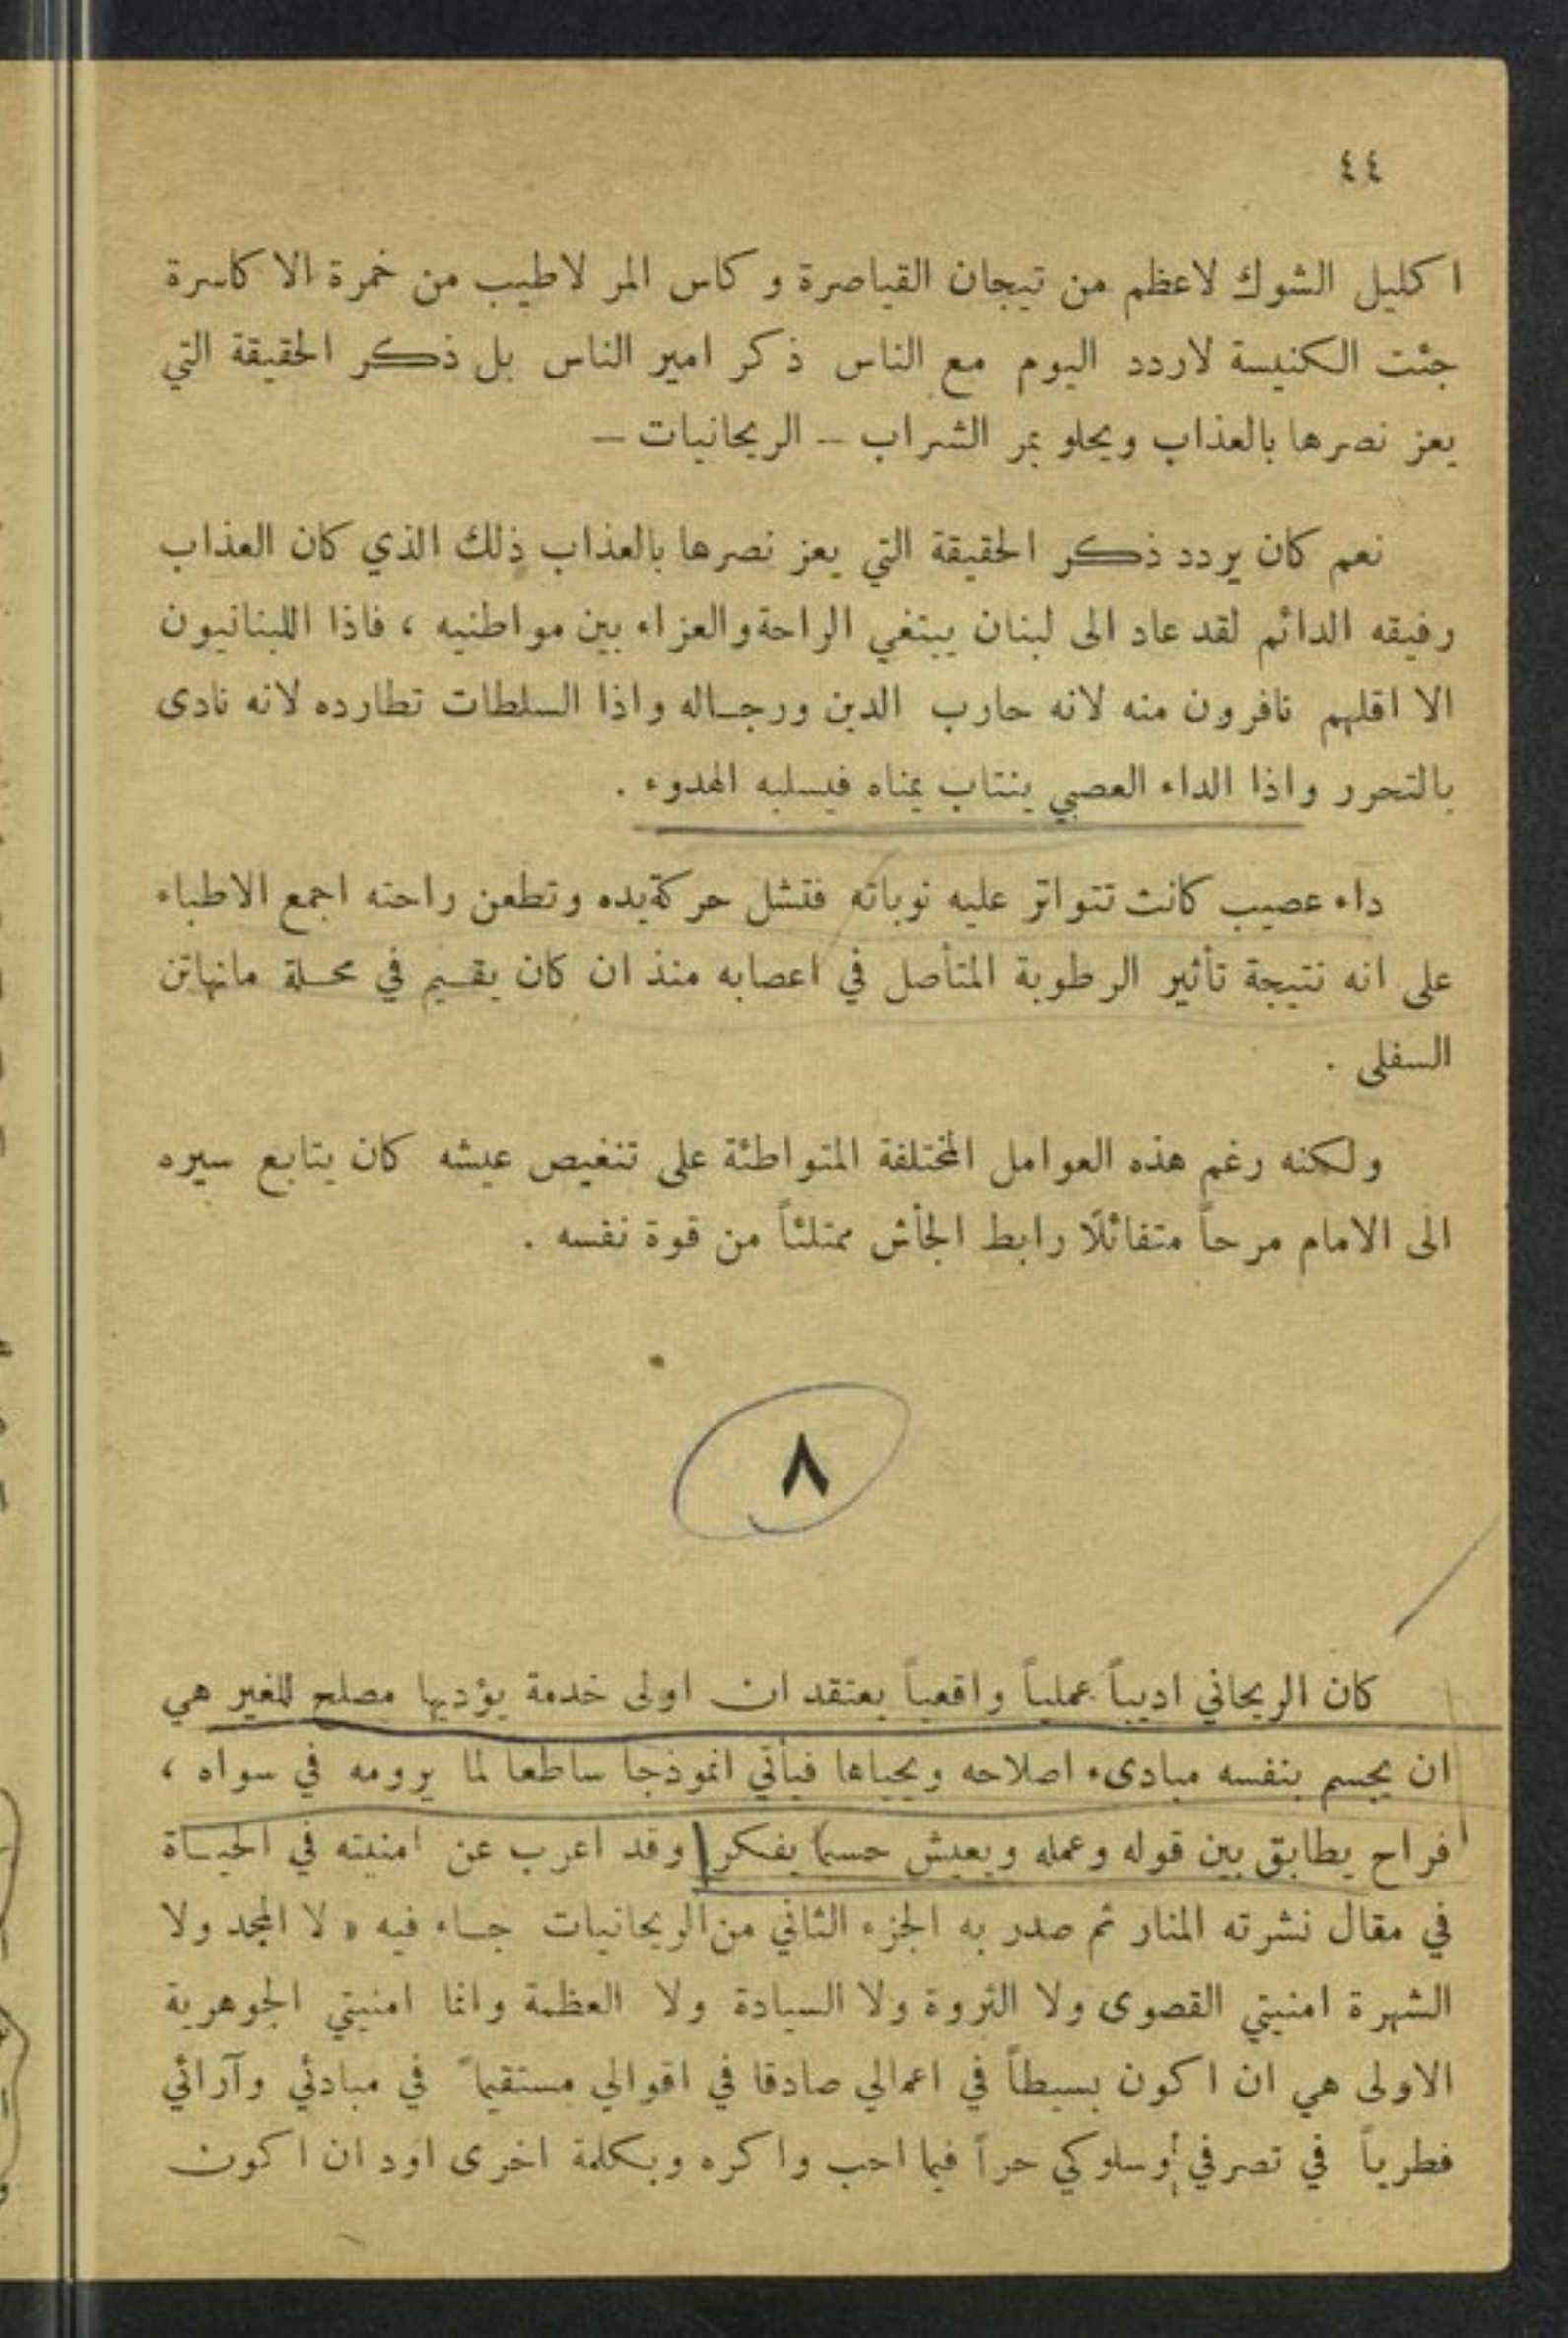 ٤٤
اكليل الشوك لاعظم من تيجان القياصرة وكاس المر لاطيب من خمرة الاكاسرة
جئت الكنيسة لاردد اليوم مع الناس ذكر امير الناس بل ذكر الحقيقة التي
يعز نصرها بالعذاب ويحلو بمر الشراب – الريحانيات –
نعم كان يردد ذكر الحقيقة التي يعز نصرها بالعذاب ذلك الذي كان العذاب
رفيقه الدائم لقد عاد الى لبنان يبتغي الراحة والعزاء بين مواطنيه ، فاذا اللبنانيون
الا اقلهم نافرون منه لانه حارب الدين ورجاله واذا السلطات تطارده لانه نادى
بالتحرر واذا الداء العصبي ينتاب يمناه فيسلبه الهدوء .
داء عصيب كانت تتواتر عليه نوباته فتشل حركة يده وتطعن راحته اجمع الاطباء
على انه نتيجة تأثير الرطوبة المتأصل في اعصابه منذ ان كان يقيم في محلة مانهاتن
السفلى .
ولكنه رغم هذه العوامل المختلفة المتواطئة على تنغيص عيشه كان يتابع سيره
الى الامام مرحاً متفائلًا رابط الجأش ممتلئاً من قوة نفسه .
٨
كان الريحاني اديباً عملياً واقعياً يعتقد ان اولى خدمة يؤديها مصلح للغير هي
ان يجسم بنفسه مبادىء اصلاحه ويحياها فيأتي انموذجا ساطعا لما يرومه في سواه ،
فراح يطابق بين قوله وعمله ويعيش حسبما يفكر وقد اعرب عن امنيته في الحياة
في مقال نشرته المنار ثم صدر به الجزء الثاني من الريحانيات جاء فيه « لا المجد ولا
الشهرة امنيتي القصوى ولا الثروة ولا السيادة ولا العظمة وانما امنيتي الجوهرية
الاولى هي ان اكون بسيطاً في اعمالي صادقا في اقوالي مستقيماً في مبادئي وآرائي
فطرياً في تصرفي وسلوكي حراً فيما احب واكره وبكلمة اخرى اود ان اكون